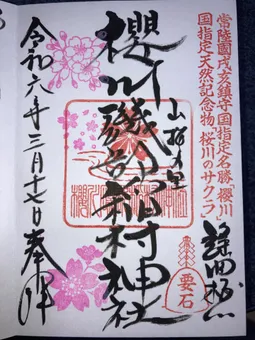 常陸國戌亥鎮守国指定名勝「櫻川」
国指定天然記念物「桜川のサクラ」
謡曲
要石
山桜の里
櫻川磯部稲村神社
令和六年三月十七日奉拝